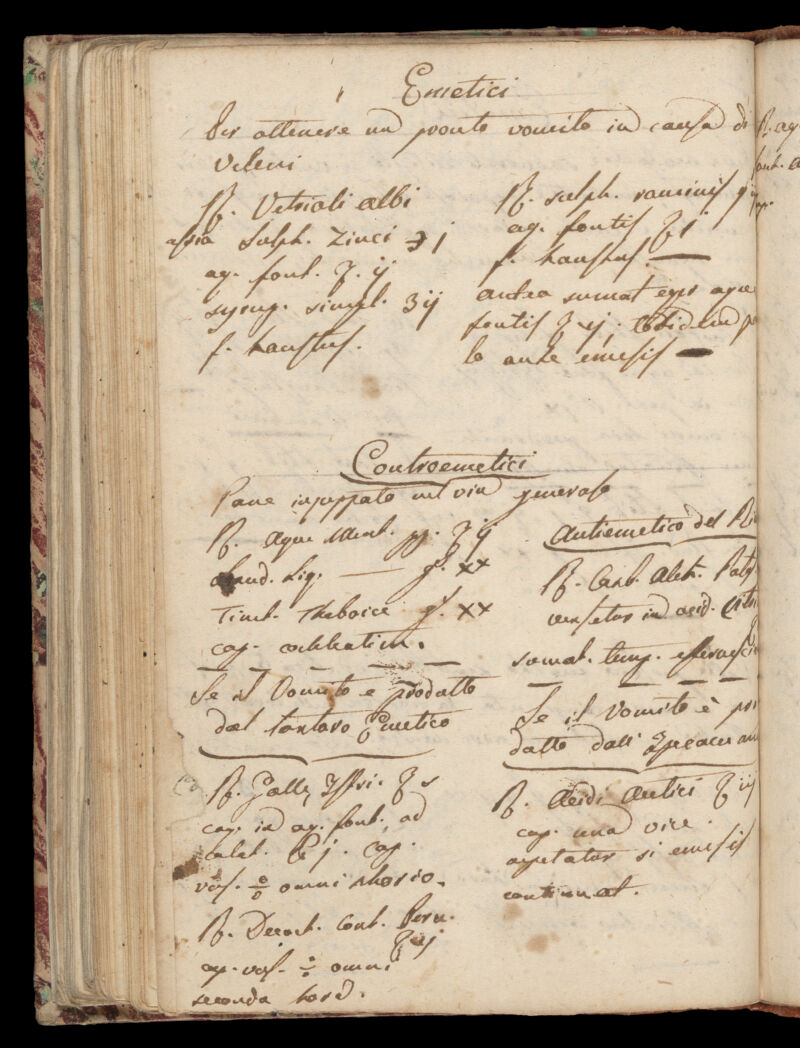 Emetici
Per ottenere un pronto vomito in causa di
Veleni
℞. Vetrioli albi
assia Sulph. Zinci ℈j
aq. font. ℥. ij
syrup. simpl. ʒij
f. haustus.
℞. sulph.
aq. fontis ℥j
f. haustus. —
antea sumat eger aque
fontis
lo ante emesis —
Controemetici
Pane inzuppato nel vin generoso
℞. Aque Menth. pp. ℥ij
Laud. liq. — g. xx
Tinct. Theboice g. xx
cap. cochleatim.
Se il Vomito e prodotto
dal tartaro Emetico
℞. Galle Istri. ℥s
coq. in aq. font. ad
colat. ℔ j. cap.
vas. omni
℞. Decoct. Cort. Peru.
℥vj
cap. vas. omni
seconda hora.
Antiemetico del Ri
℞. Carb. Alch. Pot
in acid. Citr
sumat. temp. effervesc
Se il Vomito è pro
dotto dall' Ipecacuan
℞. Acidi Acetici ℥ij
cap. una vice.
repetatur si emesis
continuat.